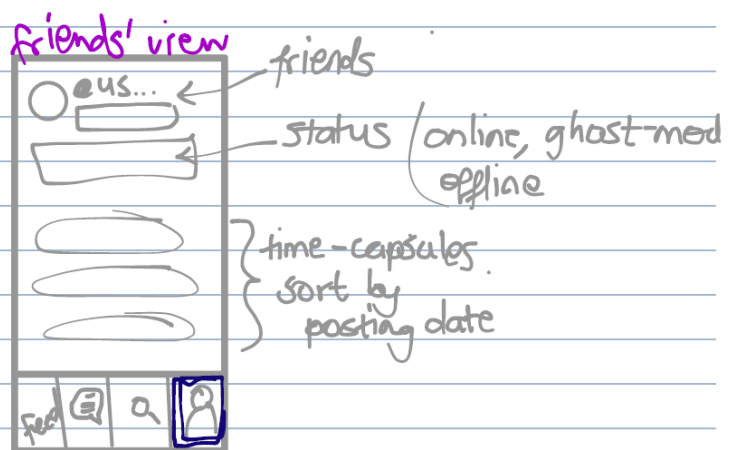 friends' view
eus...
friends
status (online, ghost-mod
offline
time-capsules
sort by
posting date
feed